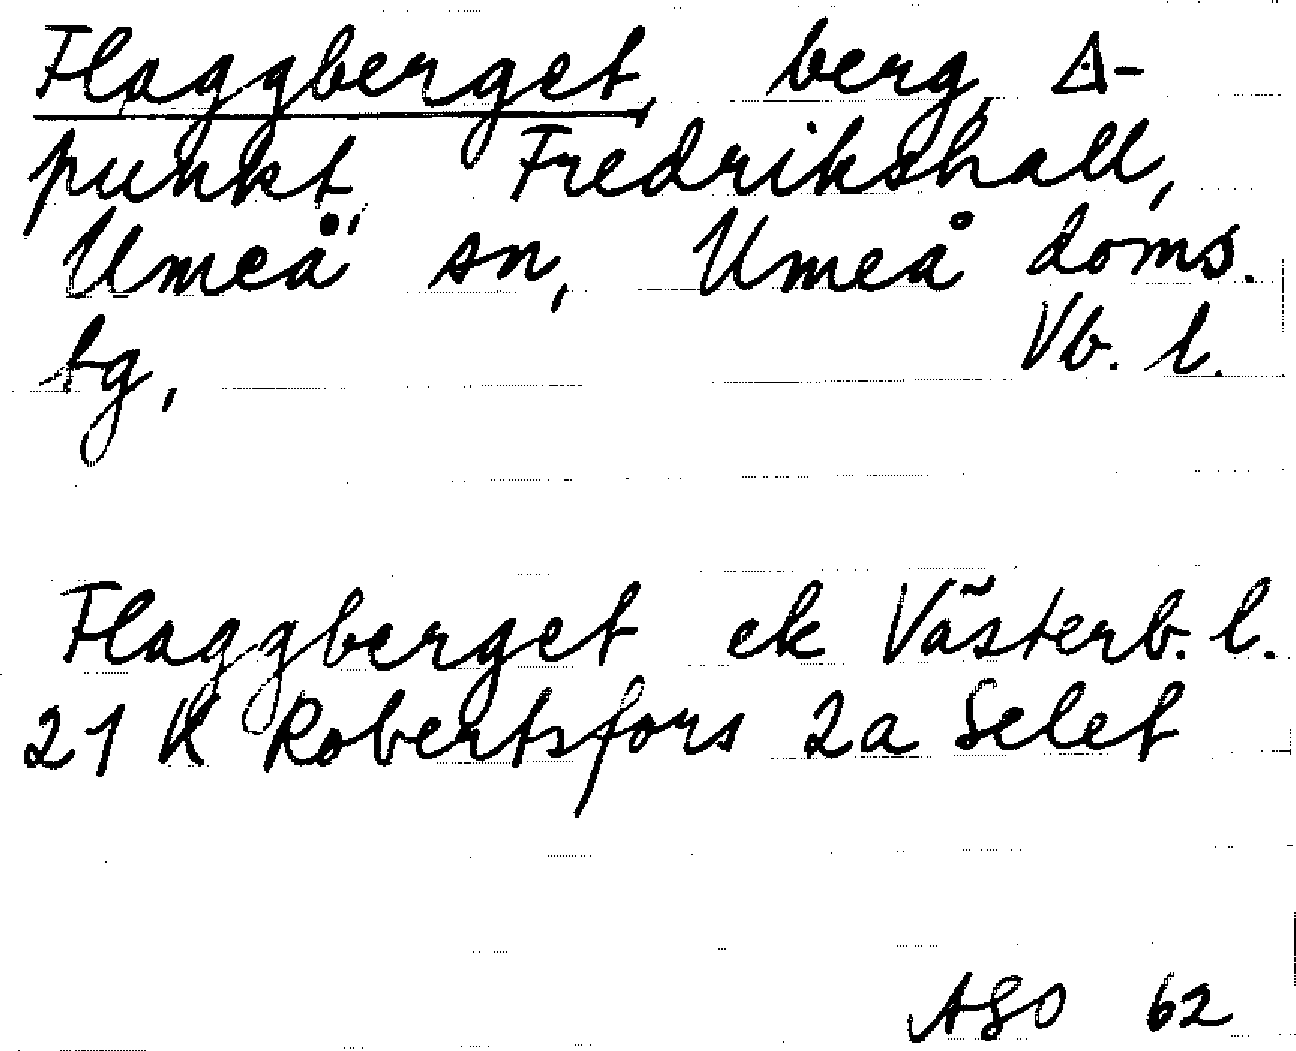 Flaggberget, berg, △-
punkt, Fredrikshall,
Umeå sn, Umeå doms.
tg, Vb. l.
Flaggberget ek Västerb. l.
21 K Robertsfors 2a Selet
ASO 62